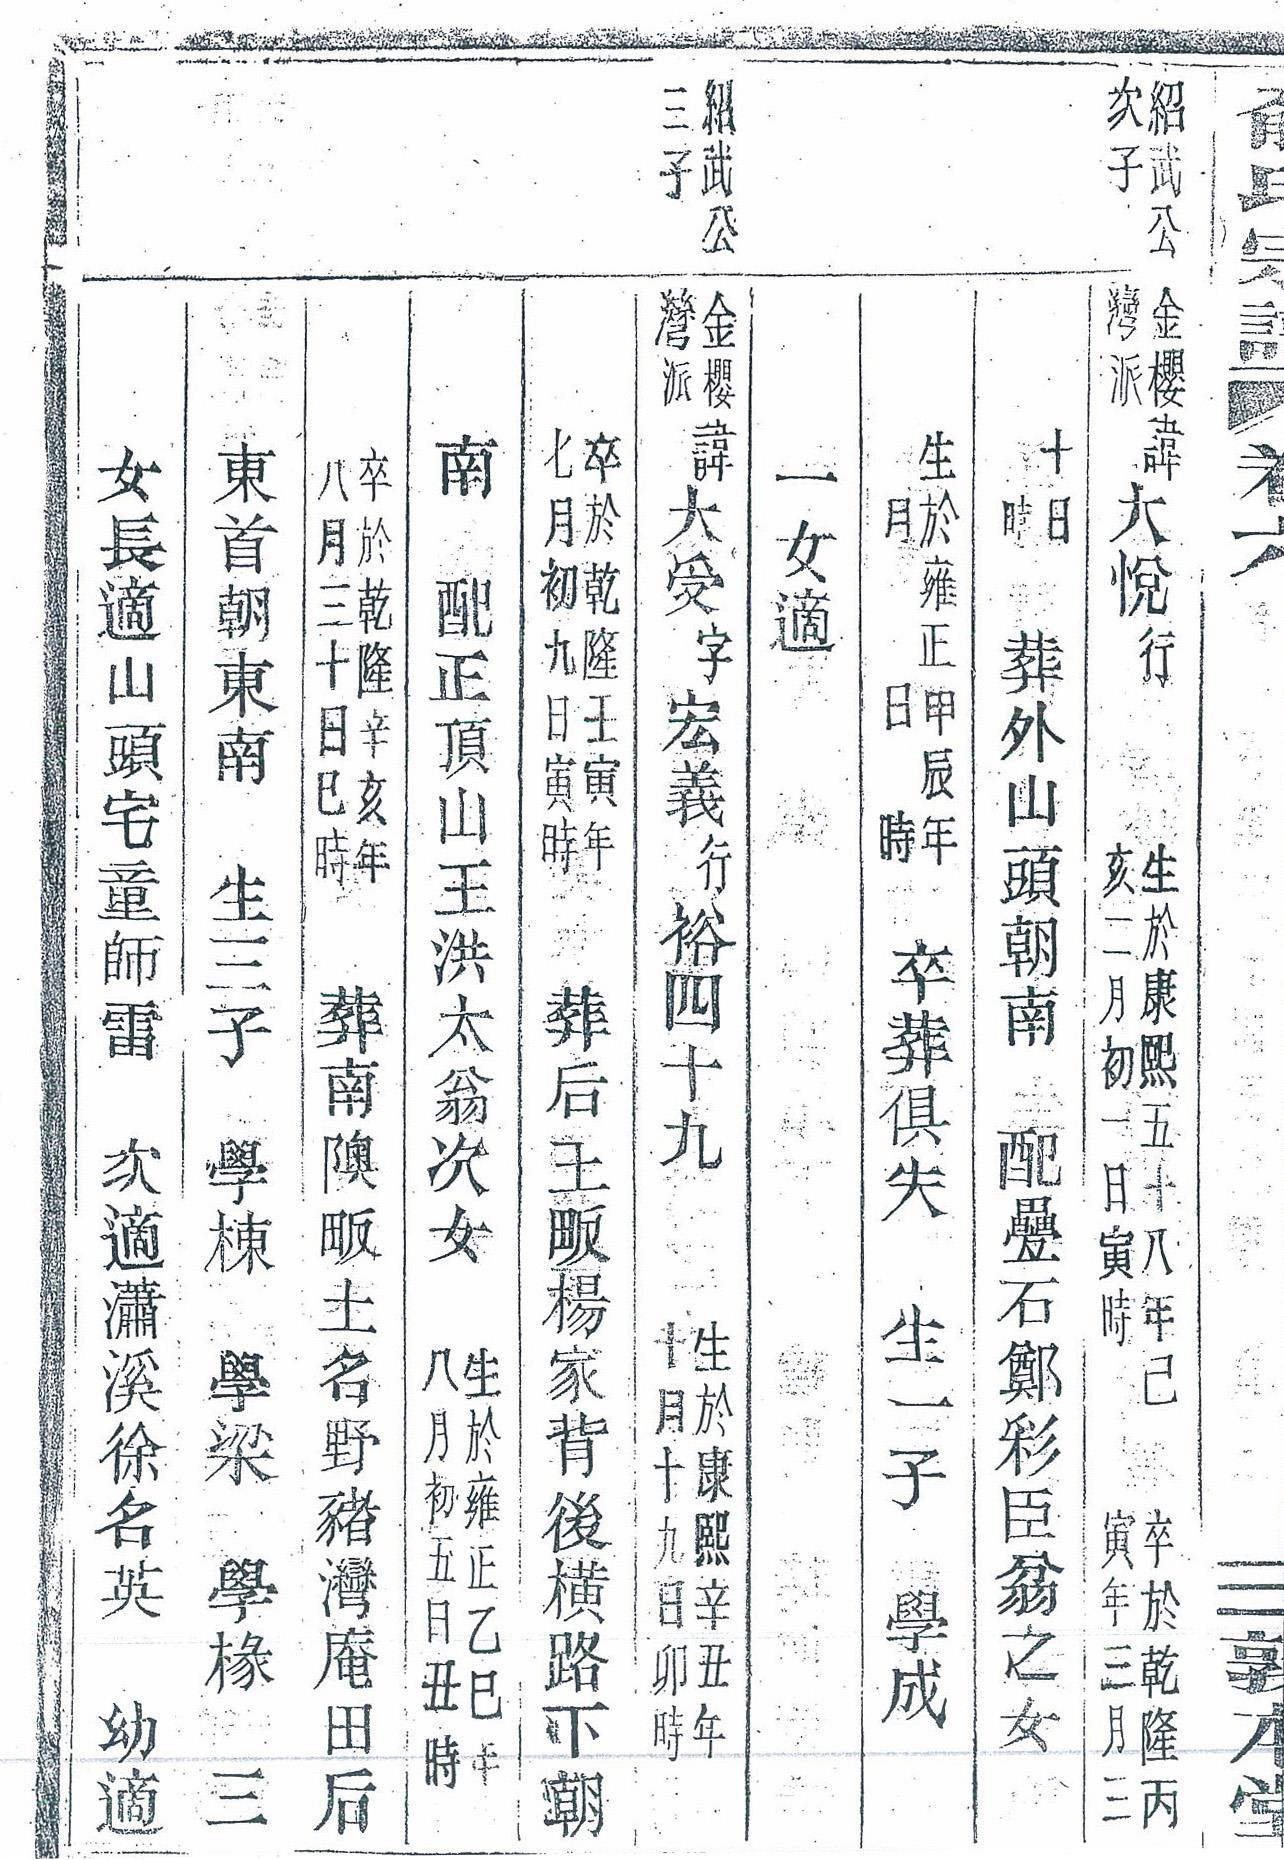 氏宗譜 卷六 三 敦本堂
紹武公
次子
金櫻
灣派
諱大悅行
生於康熙五十八年己
亥二月初一日寅時
卒於乾隆丙
寅年三月三
十日
時
葬外山頭朝南 配疊石鄭彩臣翁之女
生於雍正甲辰年
月 日 時
卒葬俱失 生一子 學成
一女適
紹武公
三子
金櫻
灣派
諱大受字宏義行裕四十九
生於康熙辛丑年
十月十九日卯時
卒於乾隆壬寅年
七月初九日寅時
葬后王畈楊家背後橫路下朝
南 配正頂山王洪太翁次女
生於雍正乙巳年
八月初五日丑時
卒於乾隆辛亥年
八月三十日巳時
葬南隩畈土名野豬灣庵田后
東首朝東南 生三子 學棟 學梁 學椽 三
女長適山頭宅童師雷 次適瀟溪徐名英 幼適